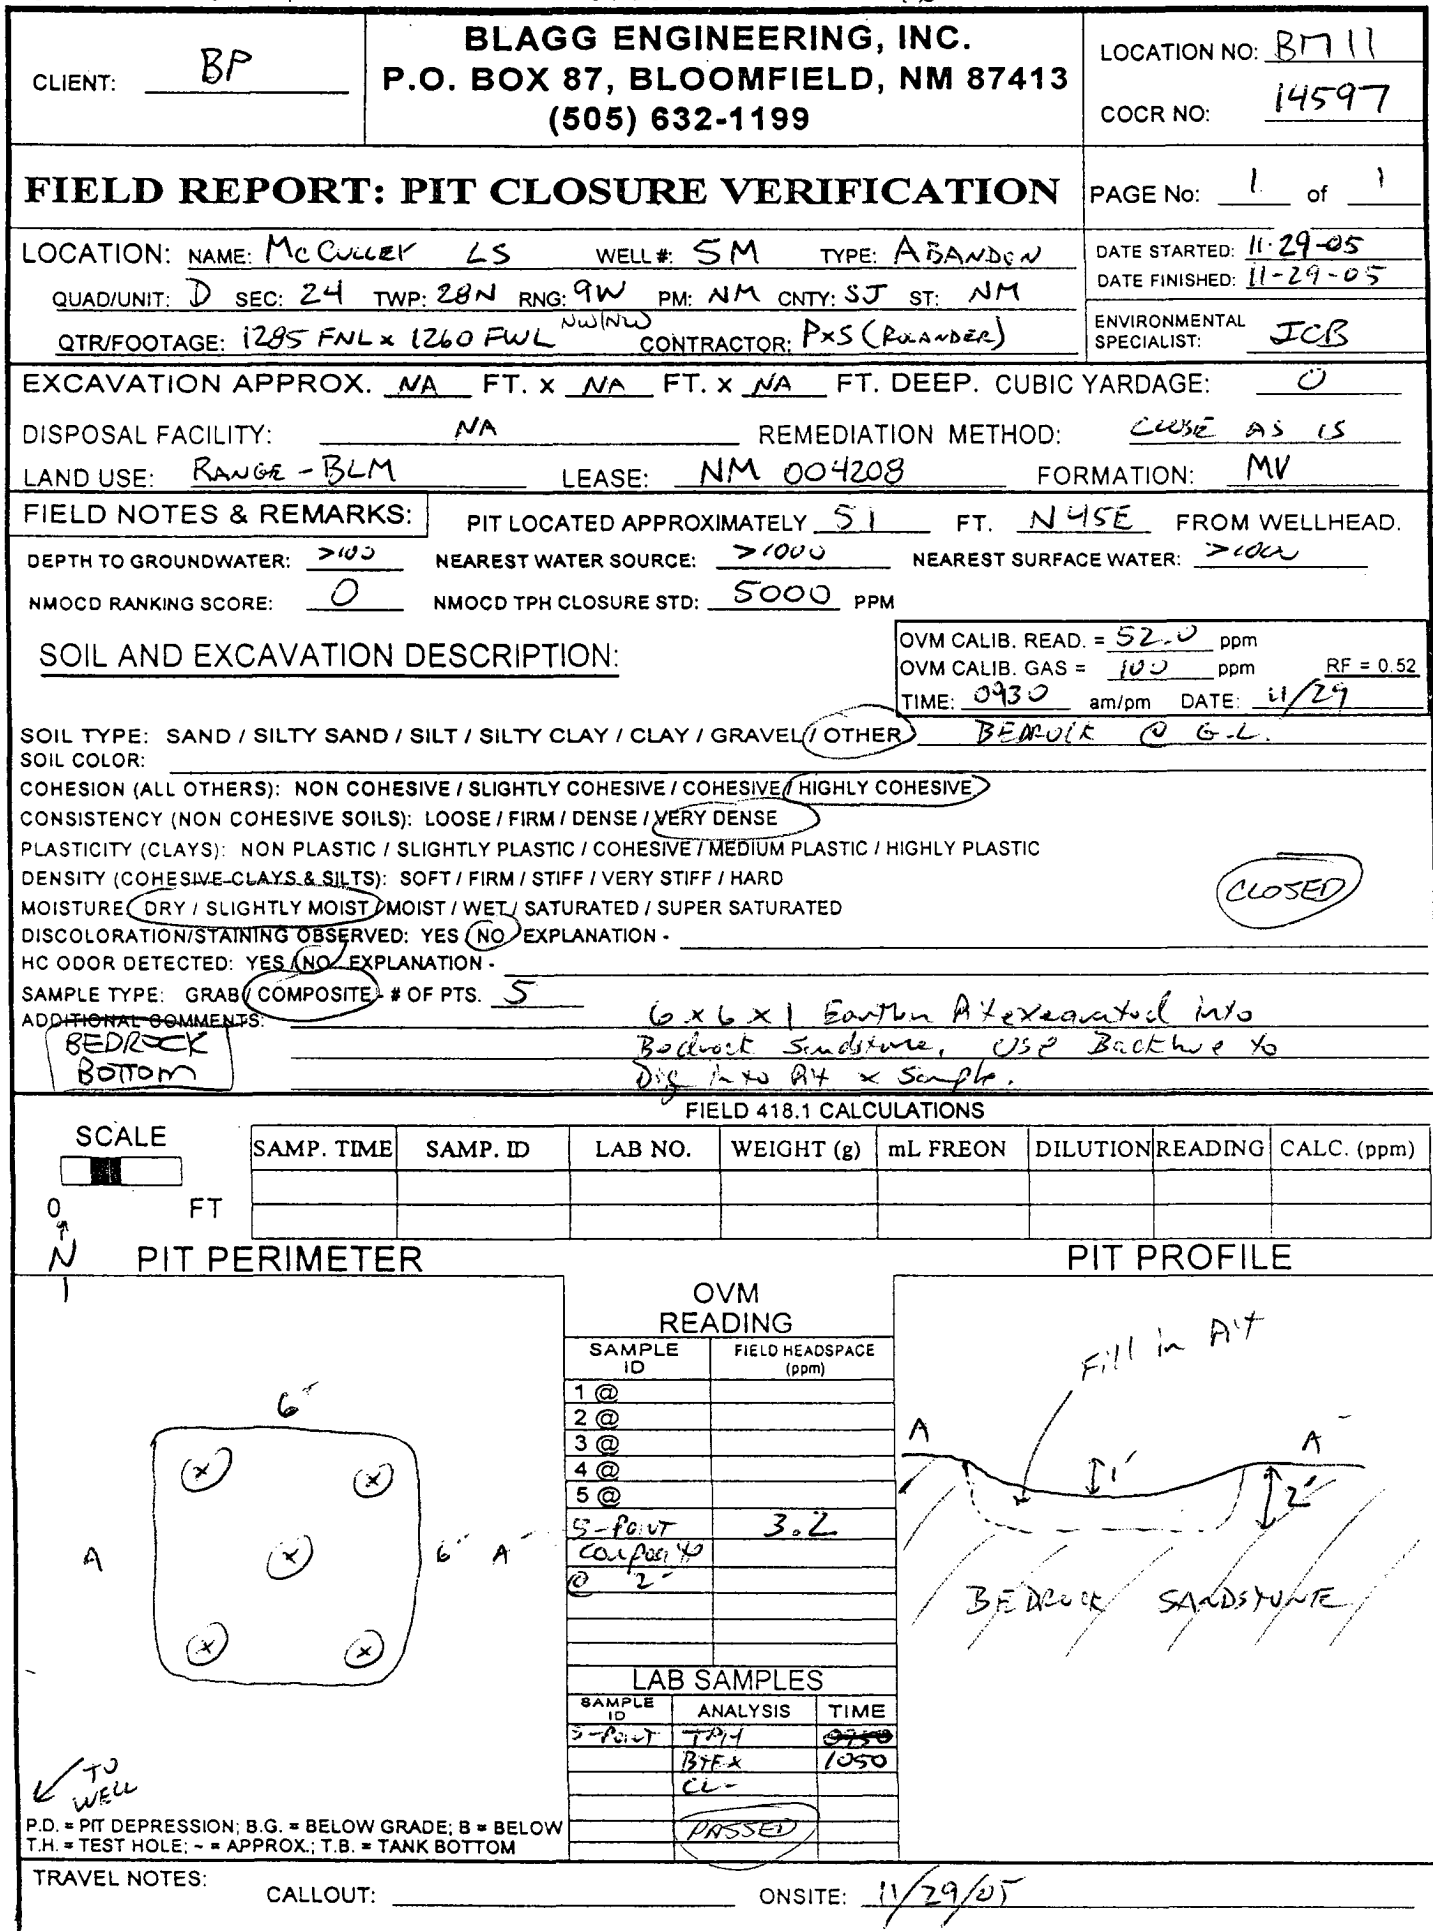 CLIENT: BP
BLAGG ENGINEERING, INC.
P.O. BOX 87, BLOOMFIELD, NM 87413
(505) 632-1199
LOCATION NO: BM11
COCR NO: 14597
FIELD REPORT: PIT CLOSURE VERIFICATION
PAGE No: 1 of 1
LOCATION: NAME: McCulley LS WELL #: 5M TYPE: ABANDON
DATE STARTED: 11-29-05
DATE FINISHED: 11-29-05
QUAD/UNIT: D SEC: 24 TWP: 28N RNG: 9W PM: NM CNTY: SJ ST: NM
QTR/FOOTAGE: 1285 FNL x 1260 FWL NW/NW CONTRACTOR: PxS
ENVIRONMENTAL
SPECIALIST: JCB
EXCAVATION APPROX. NA FT. x NA FT. x NA FT. DEEP. CUBIC YARDAGE: 0
DISPOSAL FACILITY: NA REMEDIATION METHOD: CLOSE AS IS
LAND USE: RANGE - BLM LEASE: NM 004208 FORMATION: MV
FIELD NOTES & REMARKS: PIT LOCATED APPROXIMATELY 51 FT. N45E FROM WELLHEAD.
DEPTH TO GROUNDWATER: >100 NEAREST WATER SOURCE: >1000 NEAREST SURFACE WATER: >1000
NMOCD RANKING SCORE: 0 NMOCD TPH CLOSURE STD: 5000 PPM
SOIL AND EXCAVATION DESCRIPTION:
OVM CALIB. READ. = 52.0 ppm
OVM CALIB. GAS = 100 ppm RF = 0.52
TIME: 0930 am/pm DATE: 11/29
SOIL TYPE: SAND / SILTY SAND / SILT / SILTY CLAY / CLAY / GRAVEL / OTHER BEDROCK @ G.L.
SOIL COLOR:
COHESION (ALL OTHERS): NON COHESIVE / SLIGHTLY COHESIVE / COHESIVE / HIGHLY COHESIVE
CONSISTENCY (NON COHESIVE SOILS): LOOSE / FIRM / DENSE / VERY DENSE
PLASTICITY (CLAYS): NON PLASTIC / SLIGHTLY PLASTIC / COHESIVE / MEDIUM PLASTIC / HIGHLY PLASTIC
DENSITY (COHESIVE CLAYS & SILTS): SOFT / FIRM / STIFF / VERY STIFF / HARD
CLOSED
MOISTURE: DRY / SLIGHTLY MOIST / MOIST / WET / SATURATED / SUPER SATURATED
DISCOLORATION/STAINING OBSERVED: YES / NO EXPLANATION -
HC ODOR DETECTED: YES / NO EXPLANATION -
SAMPLE TYPE: GRAB / COMPOSITE - # OF PTS. 5
ADDITIONAL COMMENTS: 6 x 6 x 1 Earthen Pit excavated into
BEDROCK Bedrock Sandstone, Use Backhoe to
BOTTOM Dig into Pit x Sample.
FIELD 418.1 CALCULATIONS
SCALE
0 FT
SAMP. TIME SAMP. ID LAB NO. WEIGHT (g) mL FREON DILUTION READING CALC. (ppm)
N
PIT PERIMETER
PIT PROFILE
OVM
READING
SAMPLE ID FIELD HEADSPACE (ppm)
1 @
2 @
3 @
4 @
5 @
5-Point 3.2
Composite
@ 2'
6'
A 6' A'
x x x x x
Fill in Pit
A A'
1' 2'
BEDROCK SANDSTONE
LAB SAMPLES
SAMPLE ID ANALYSIS TIME
5-Point TPH 0950
BTEX 1050
CL-
PASSED
TO
WELL
P.D. = PIT DEPRESSION; B.G. = BELOW GRADE; B = BELOW
T.H. = TEST HOLE; ~ = APPROX.; T.B. = TANK BOTTOM
TRAVEL NOTES: CALLOUT: ONSITE: 11/29/05